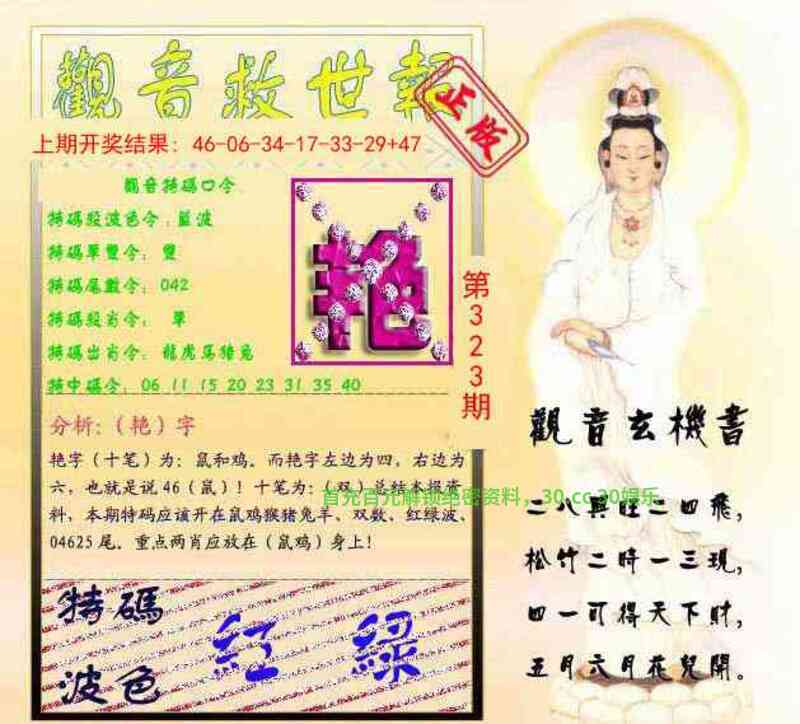 觀音救世報
正版
上期开奖结果：46-06-34-17-33-29+47
觀音特碼口令
特碼段波色令：藍波
特碼單雙令：雙
特碼尾數令：042
特碼段肖令：單
特碼出肖令：龍虎馬豬兔
特中碼令：06 11 15 20 23 31 35 40
艳
第323期
分析：（艳）字
艳字（十笔）为：鼠和鸡。而艳字左边为四，右边为
六，也就是说46（鼠）！十笔为：（双）总结本报资
料，本期特码应该开在鼠鸡猴猪兔羊、双数、红绿波、
04625尾。重点两肖应放在（鼠鸡）身上！
首充百元解锁绝密资料，30.cc30娱乐
特碼
波色
紅 綠
觀音玄機書
二八興旺二四飛，
松竹二時一三現，
四一可得天下財，
五月六月花兒開。